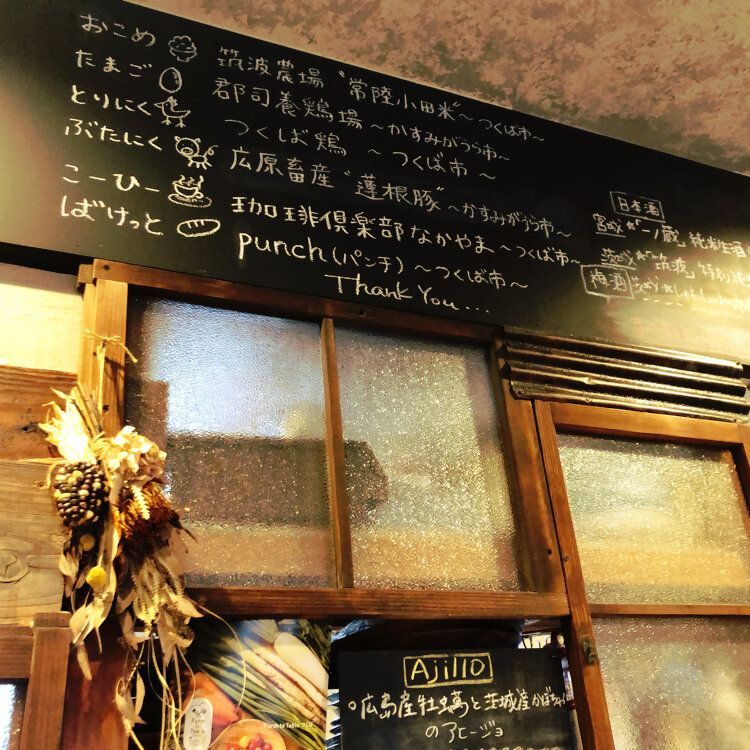 おこめ 筑波農場 "常陸小田米" ～つくば市～
たまご 郡司養鶏場 ～かすみがうら市～
とりにく つくば鶏 ～つくば市～
ぶたにく 広原畜産 "蓮根豚" ～かすみがうら市～
こーひー 珈琲倶楽部なかやま ～つくば市～
ばけっと punch (パンチ) ～つくば市～
Thank You....
日本酒
宮城 "一ノ蔵" 純米生酒
茨城 "筑波"
梅酒 茨城
Ajillo
広島産牡蠣と茨城産かぼちゃ
のアヒージョ
Farm to Table